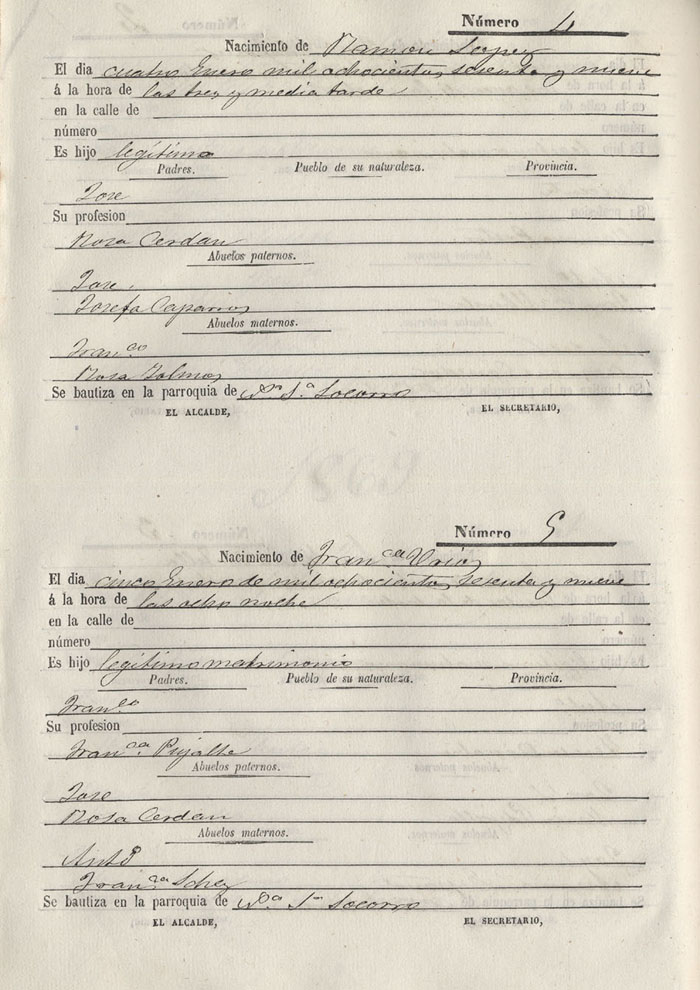 Número 4
Nacimiento de Ramon Lopez
El dia cuatro Enero mil ochocientos sesenta y nueve
á la hora de las tres y media tarde
en la calle de
número
Es hijo legitimo
Padres. Pueblo de su naturaleza. Provincia.
Jose
Su profesion
Rosa Cerdan
Abuelos paternos.
Jose
Josefa Caparros
Abuelos maternos.
Franco
Rosa
Se bautiza en la parroquia de Socorro
EL ALCALDE, EL SECRETARIO,
1869
Número 5
Nacimiento de Franca Urios
El dia cinco Enero de mil ochocientos sesenta y nueve
á la hora de las ocho noche
en la calle de
número
Es hijo legitimo matrimonio
Padres. Pueblo de su naturaleza. Provincia.
Franco
Su profesion
Franca Pujalte
Abuelos paternos.
Jose
Rosa Cerdan
Abuelos maternos.
Anto
Franca Schez
Se bautiza en la parroquia de Socorro
EL ALCALDE, EL SECRETARIO,